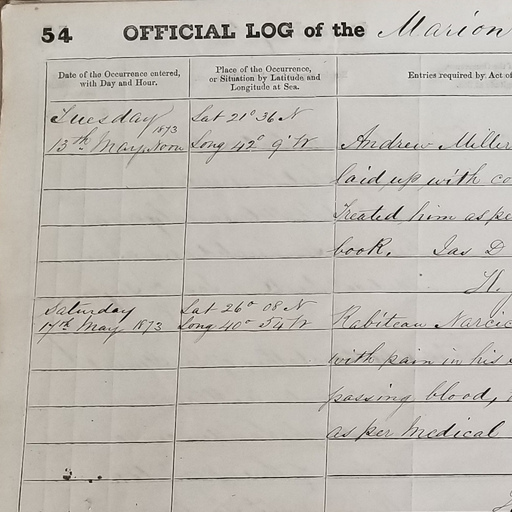 54 OFFICIAL LOG of the Marion
Date of the Occurrence entered, with Day and Hour.
Place of the Occurrence, or Situation by Latitude and Longitude at Sea.
Entries required by Act of
Tuesday
1873
13th May Noon
Lat 21° 36 N
Long 42° 9' W
Andrew Miller
laid up with co
Treated him as pe
book. Jas D
H.
Saturday
17th May 1873
Lat 26° 08 N
Long 40° 54 W
Rabiteau Narcis
with pain in his
passing blood,
as per Medical